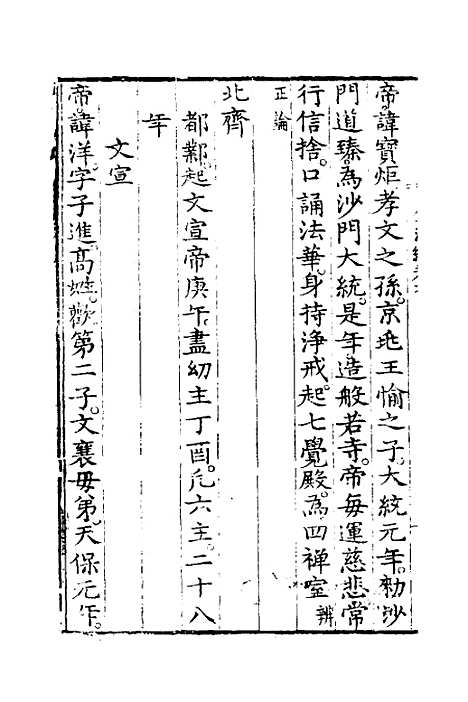 帝諱寶炬孝文之孫。京兆王愉之子。大統元年。勑沙
門道臻。為沙門大統。是年造般若寺。帝每運慈悲常
行信捨。口誦法華。身持淨戒。起七覺殿。為四禪室辨
正論
北齊
都鄴。起文宣帝庚午。盡幼主丁酉。凡六主。二十八
年
文宣
帝諱洋。字子進。高姓。歡第二子。文襄母弟。天保元年。